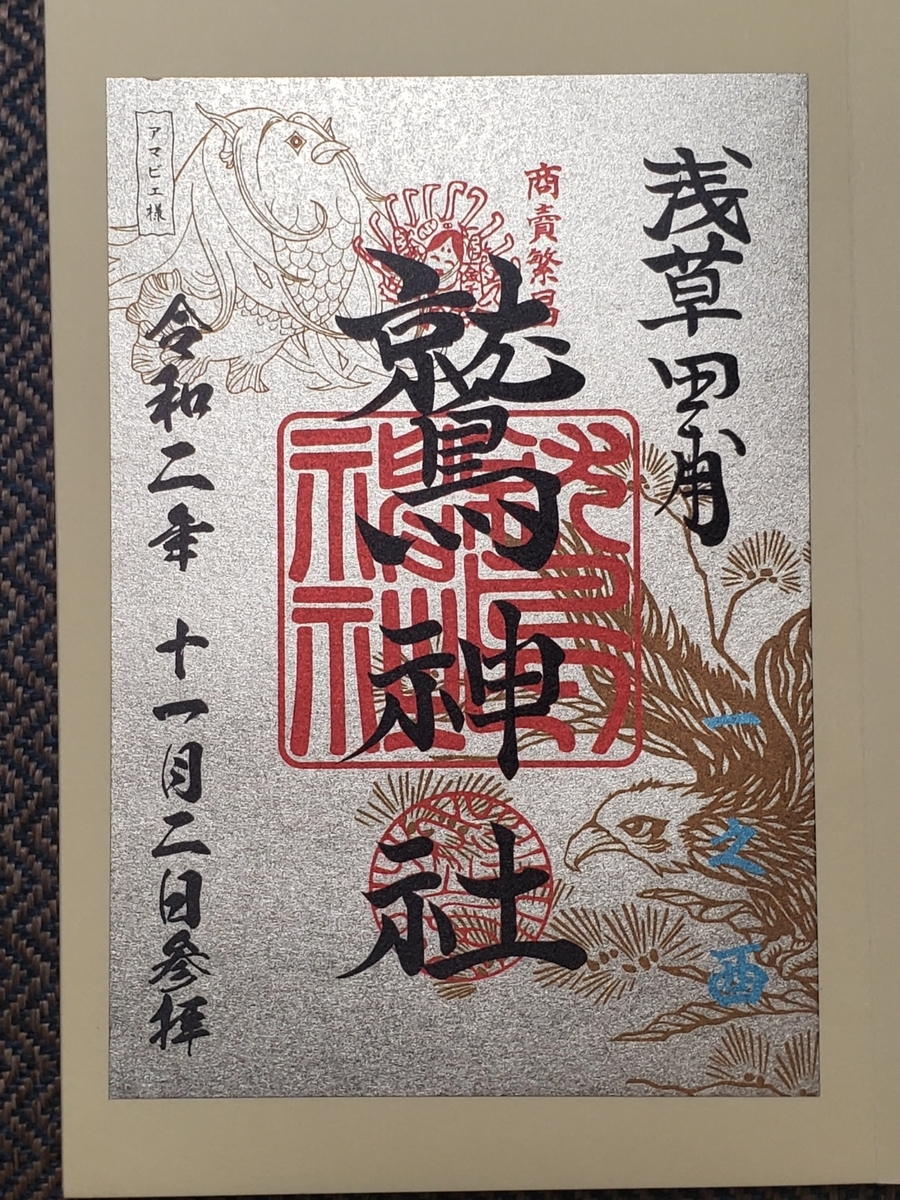 浅草田甫
一之酉
商売繁昌
鷲神社
令和二年 十一月二日参拝
アマビエ様